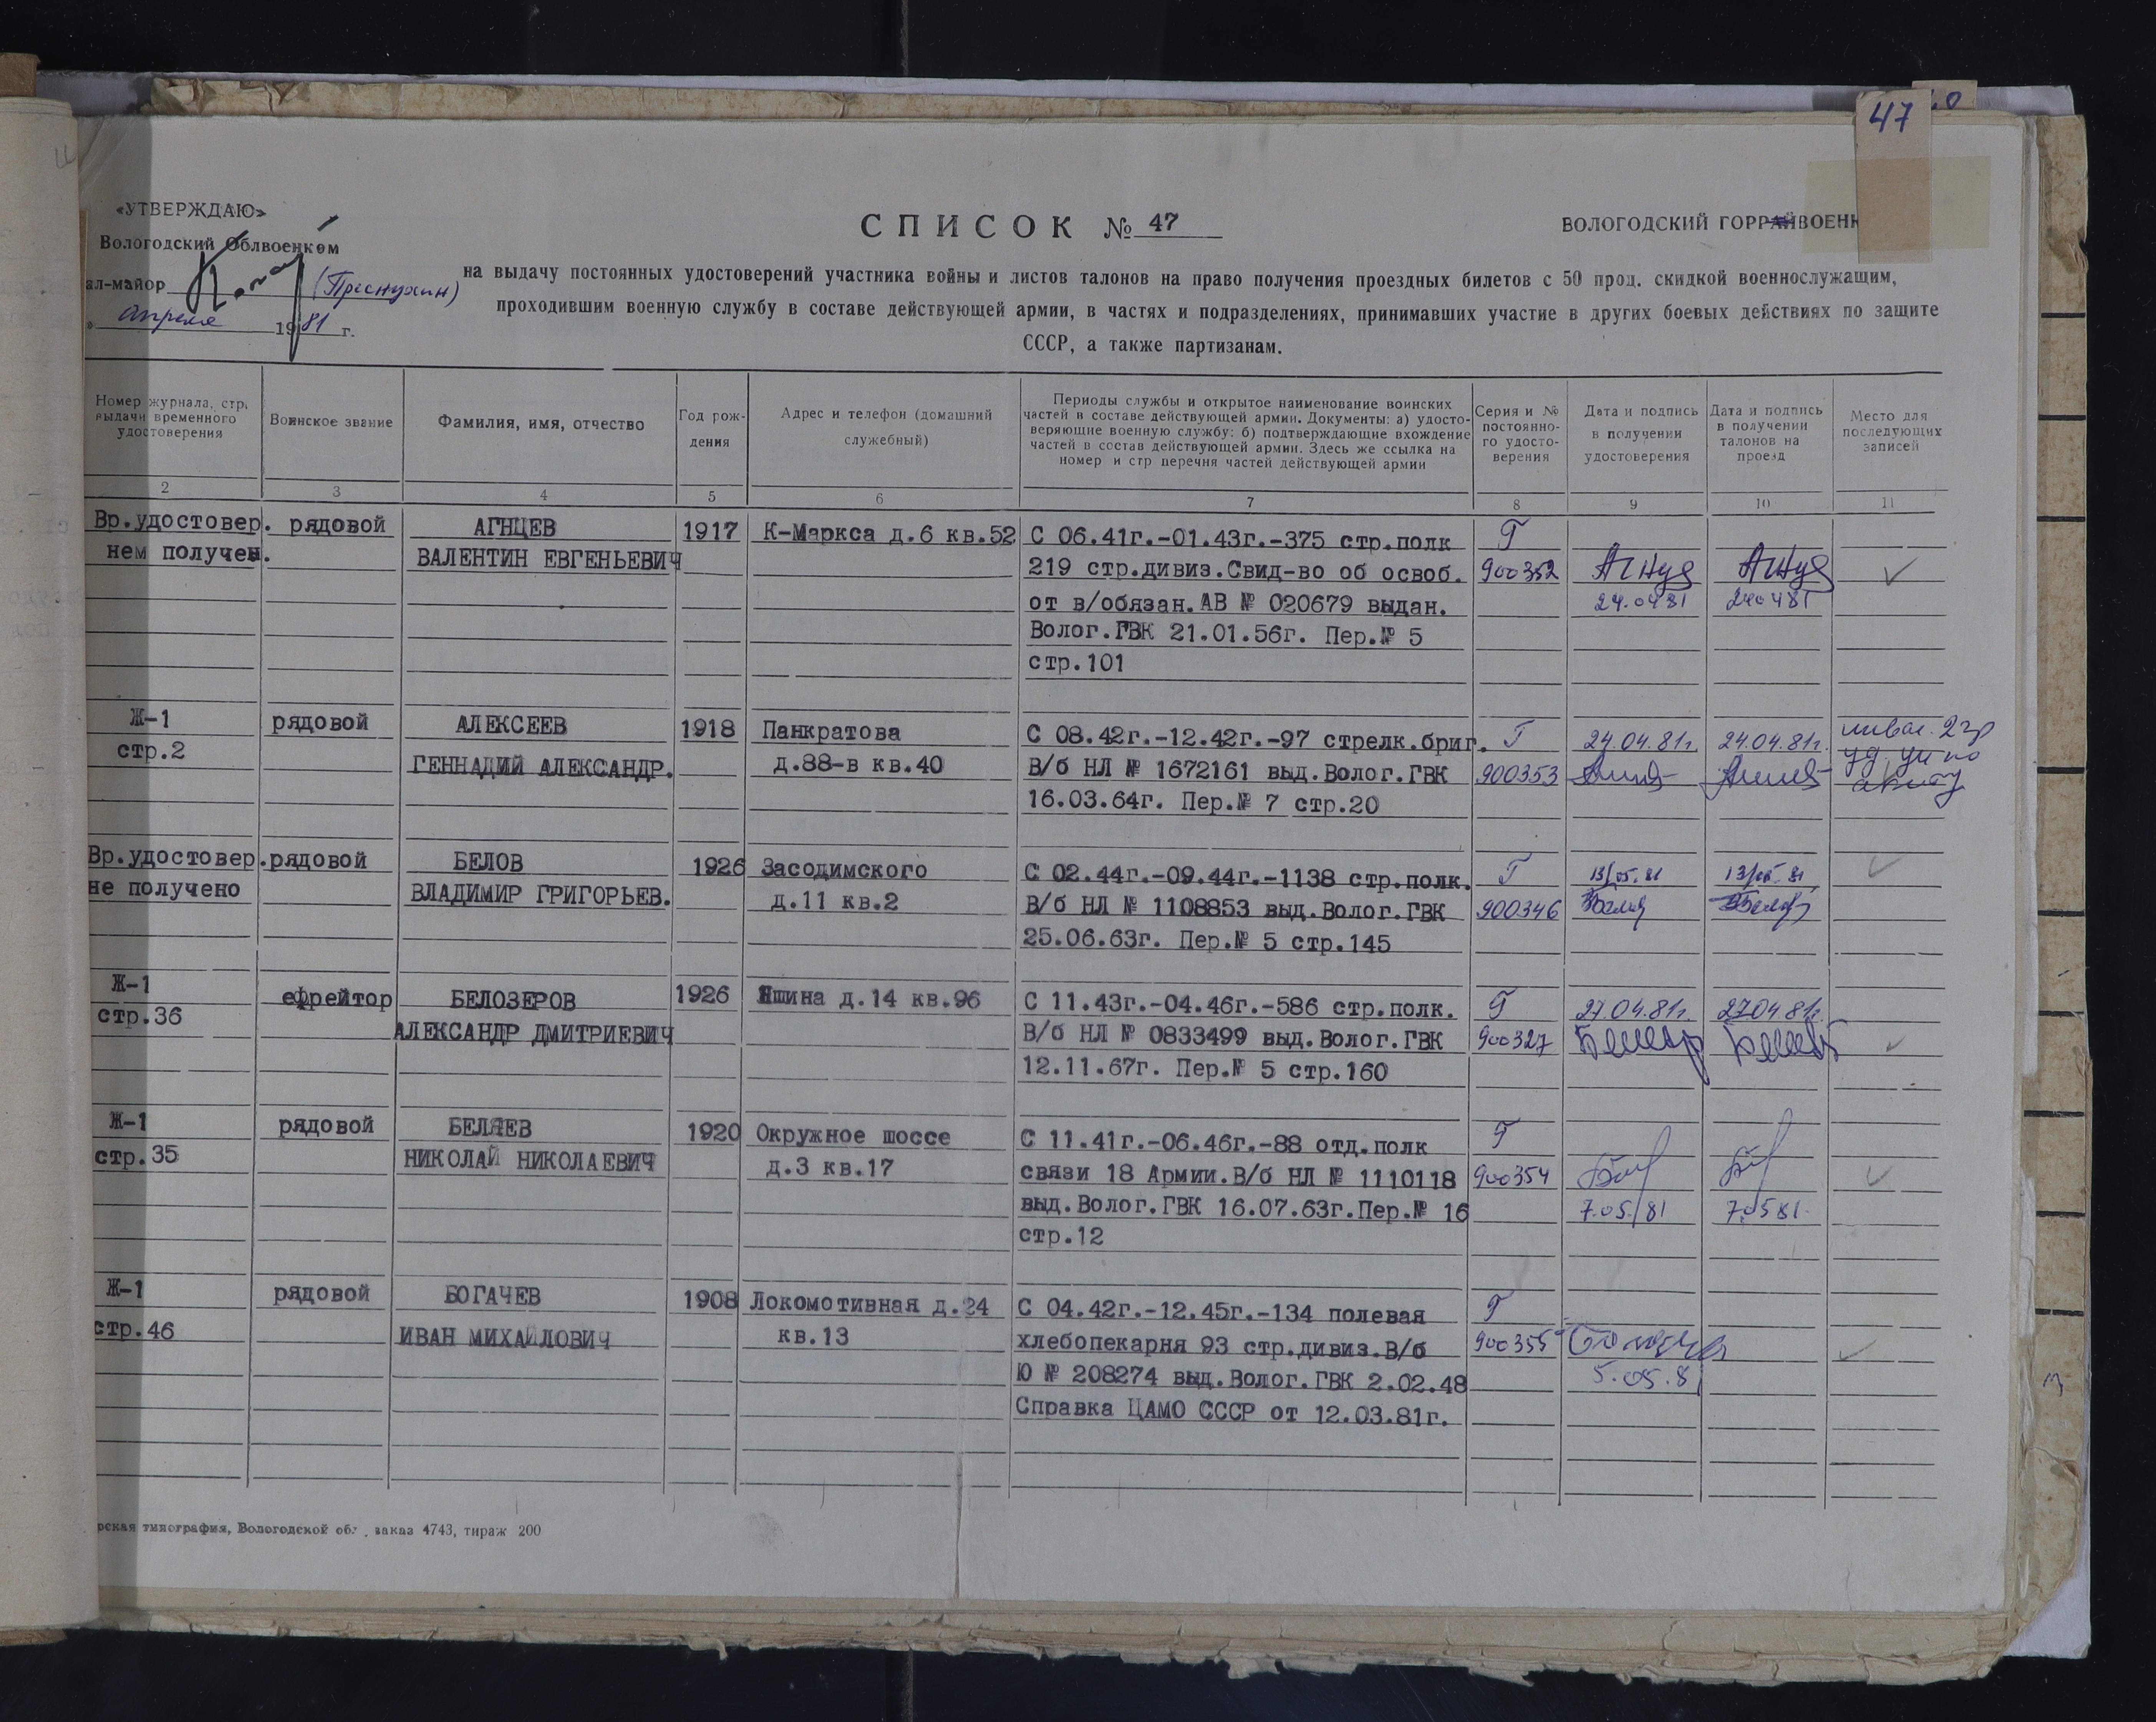 47
«УТВЕРЖДАЮ»
Вологодский Облвоенком
ал-майор (Преснухин)
апреля 1981 г.
СПИСОК № 47
ВОЛОГОДСКИЙ ГОРРАЙВОЕНК
на выдачу постоянных удостоверений участника войны и листов талонов на право получения проездных билетов с 50 проц. скидкой военнослужащим,
проходившим военную службу в составе действующей армии, в частях и подразделениях, принимавших участие в других боевых действиях по защите
СССР, а также партизанам.
Номер журнала, стр. выдачи временного удостоверения
Воинское звание
Фамилия, имя, отчество
Год рож-
дения
Адрес и телефон (домашний
служебный)
Периоды службы и открытое наименование воинских
частей в составе действующей армии. Документы: а) удосто-
веряющие военную службу; б) подтверждающие вхождение
частей в состав действующей армии. Здесь же ссылка на
номер и стр перечня частей действующей армии
Серия и №
постоянно-
го удосто-
верения
Дата и подпись
в получении
удостоверения
Дата и подпись
в получении
талонов на
проезд
Место для
последующих
записей
2 3 4 5 6 7 8 9 10 11
Вр.удостовер. рядовой АГНЦЕВ 1917 К-Маркса д.6 кв.52 С 06.41г.-01.43г.-375 стр.полк Г
нем получен. ВАЛЕНТИН ЕВГЕНЬЕВИЧ 219 стр.дивиз.Свид-во об освоб. 900352
от в/обязан.АВ № 020679 выдан. 24.04 81 240481
Волог.ГВК 21.01.56г. Пер.№ 5
стр.101
Ж-1 рядовой АЛЕКСЕЕВ 1918 Панкратова С 08.42г.-12.42г.-97 стрелк.бриг. Г 24.04.81г. 24.04.81г. инвал. 2 гр
стр.2 ГЕННАДИЙ АЛЕКСАНДР. д.88-в кв.40 В/б НЛ № 1672161 выд.Волог.ГВК 900353
16.03.64г. Пер.№ 7 стр.20
Вр.удостовер.рядовой БЕЛОВ 1926 Засодимского С 02.44г.-09.44г.-1138 стр.полк. Г 13/05.81 13/05.81
не получено ВЛАДИМИР ГРИГОРЬЕВ. д.11 кв.2 В/б НЛ № 1108853 выд.Волог.ГВК 900346
25.06.63г. Пер.№ 5 стр.145
Ж-1 ефрейтор БЕЛОЗЕРОВ 1926 Яшина д.14 кв.96 С 11.43г.-04.46г.-586 стр.полк. Г 27.04.81г. 27.04 81г.
стр.36 АЛЕКСАНДР ДМИТРИЕВИЧ В/б НЛ № 0833499 выд.Волог.ГВК 900327
12.11.67г. Пер.№ 5 стр.160
Ж-1 рядовой БЕЛЯЕВ 1920 Окружное шоссе С 11.41г.-06.46г.-88 отд.полк Г
стр.35 НИКОЛАЙ НИКОЛАЕВИЧ д.3 кв.17 связи 18 Армии.В/б НЛ № 1110118 900354
выд.Волог.ГВК 16.07.63г.Пер.№ 16 7.05/81 7.0581.
стр.12
Ж-1 рядовой БОГАЧЕВ 1908 Локомотивная д.24 С 04.42г.-12.45г.-134 полевая Г
стр.46 ИВАН МИХАЙЛОВИЧ кв.13 хлебопекарня 93 стр.дивиз.В/б 900355
Ю № 208274 выд.Волог.ГВК 2.02.48 5.05.81
Справка ЦАМО СССР от 12.03.81г.
рская типография, Вологодской обл., заказ 4743, тираж 200